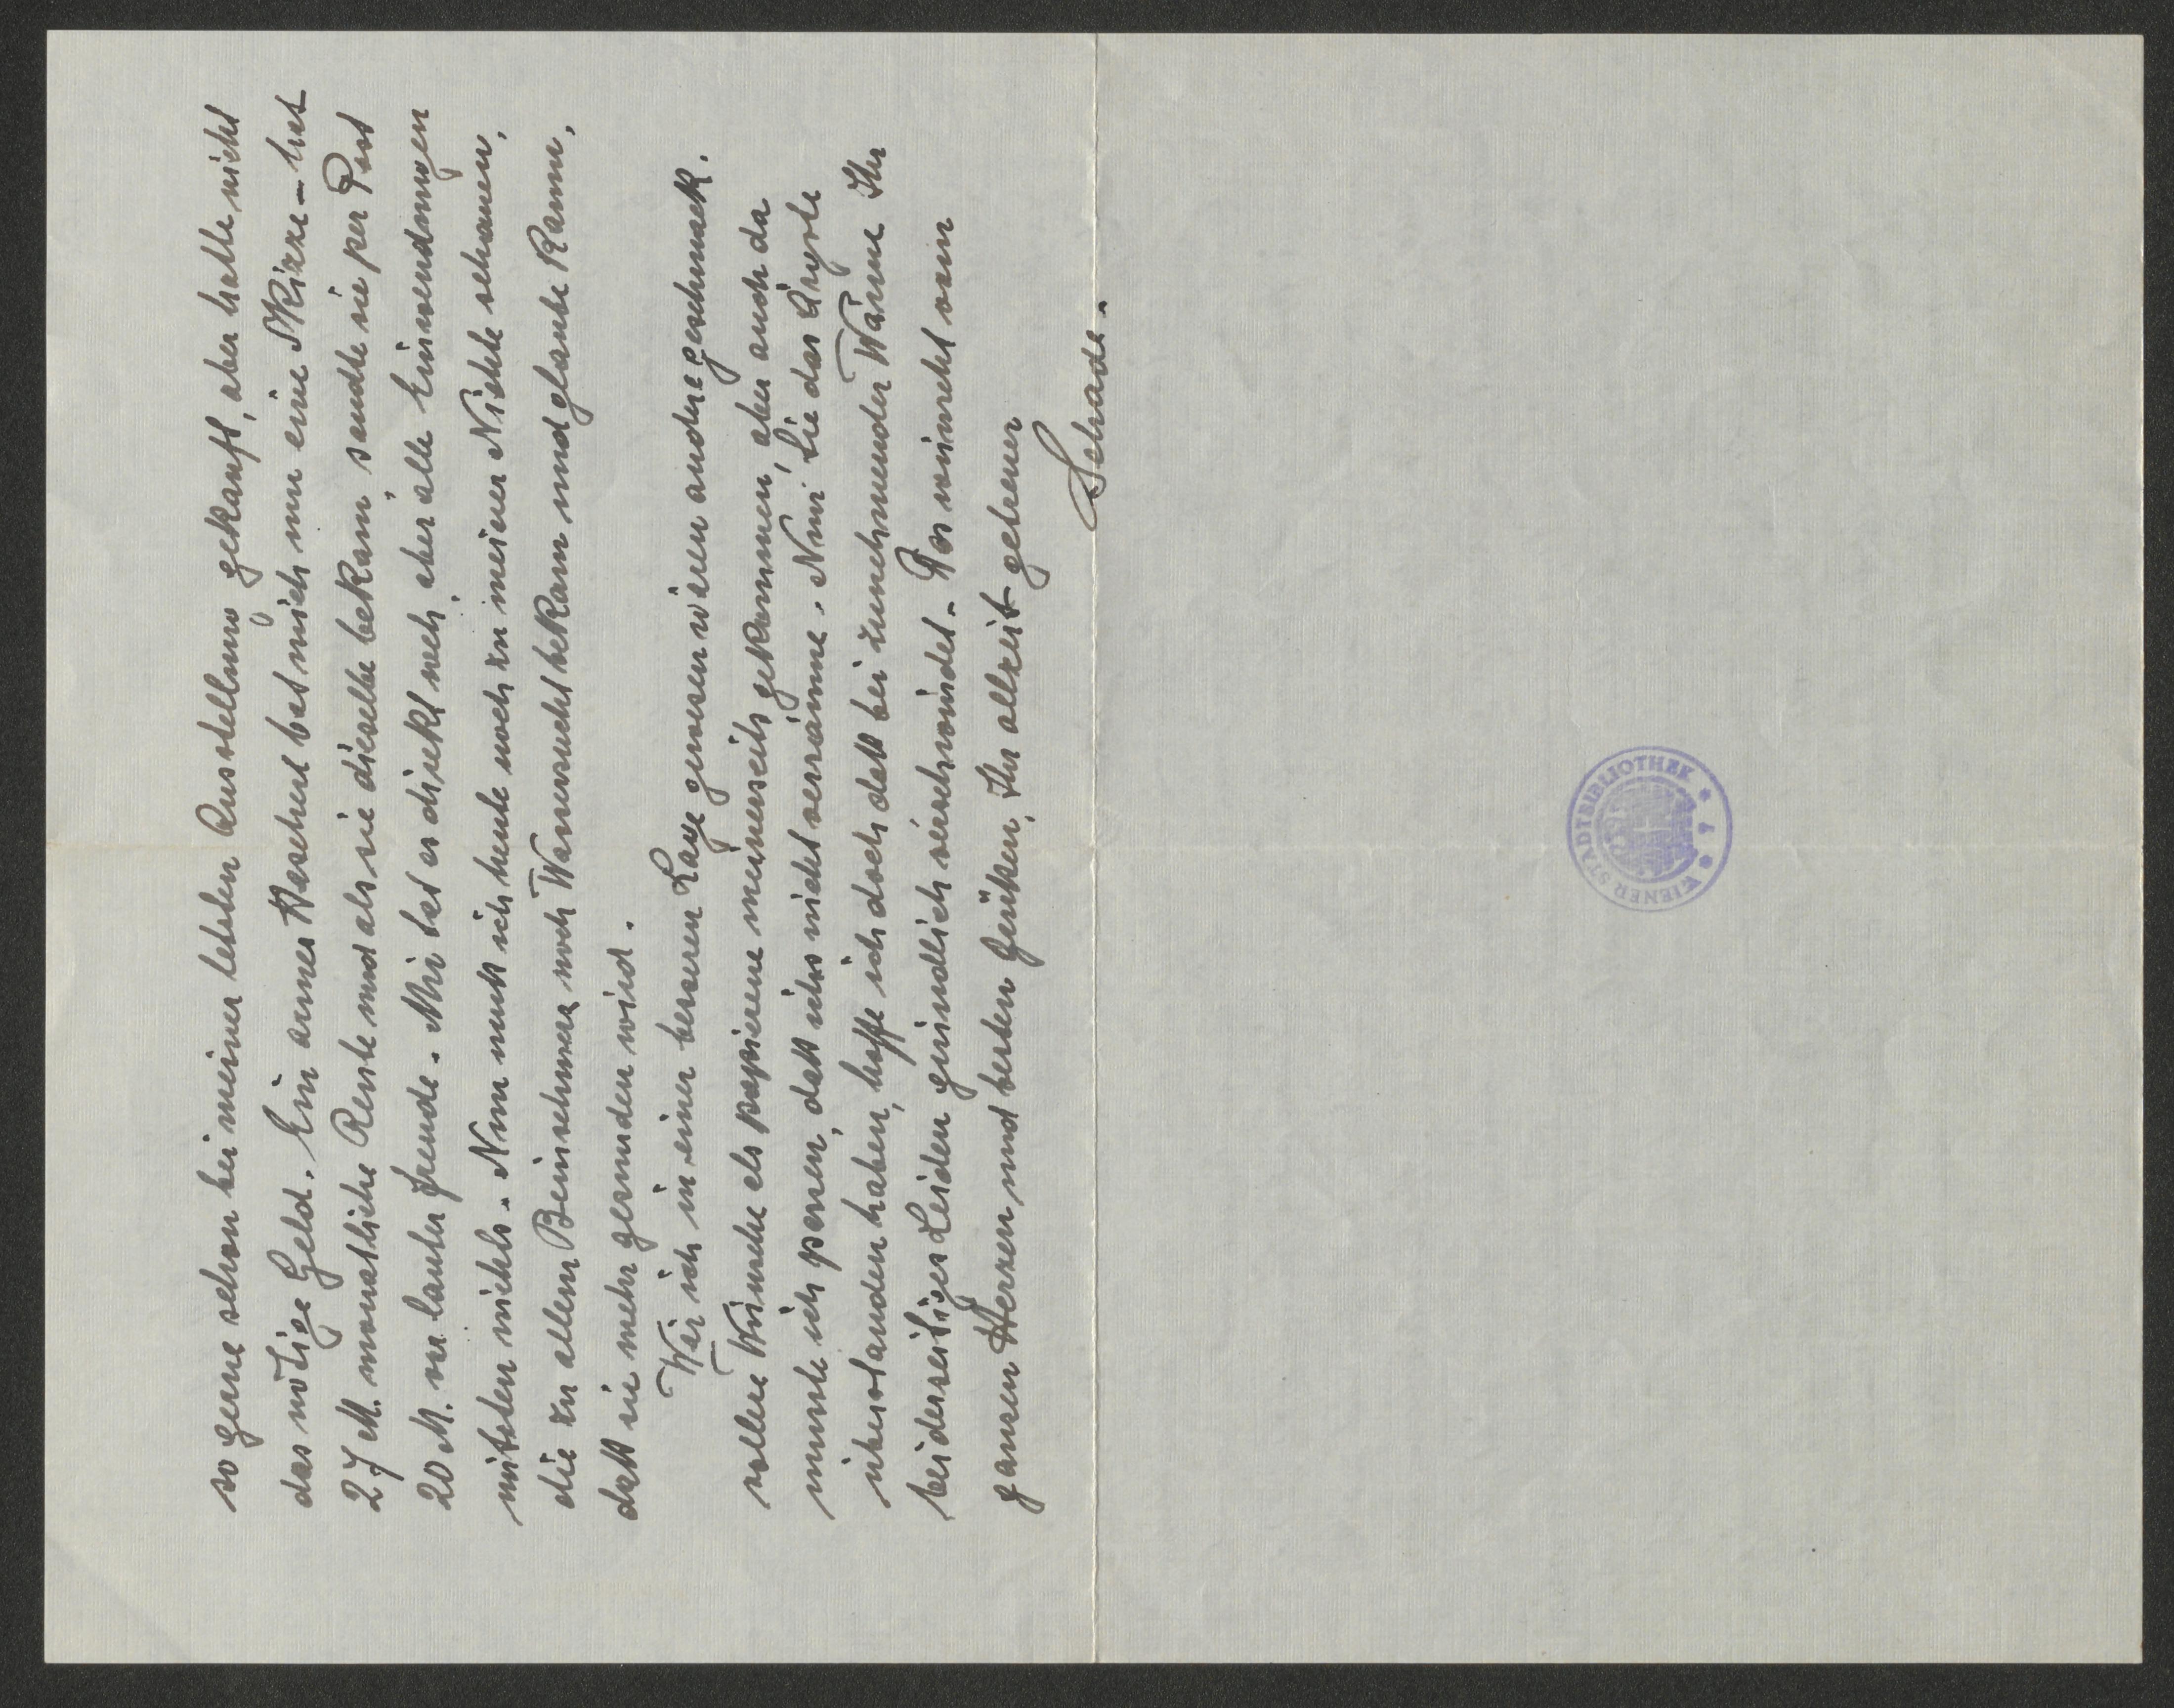 so gerne schon bei meiner letzten Ausstellung gekauft, aber hatte nicht
das nötige Geld. Ein armes Mädchen bat mich um eine Skizze – hat
27 M. monatliche Rente und als sie dieselbe bekam, sandte sie per Post
20 M. vor lauter Freude. Mir tat es direkt weh, aber alle Einwendungen
nützten nichts. Nun muß ich heute noch zu meiner Nichte schauen,
die zu allem Beinschmerz noch Wassersucht bekam und glaube kaum,
daß sie mehr gesunden wird.
Wär ich in einer besseren Lage gewesen wären andere geschmack.
vollere Wünsche als papierene meinerseits gekommen, aber auch da
musste ich passen, daß ichs nicht versäume. Nun Sie das Ärgste
überstanden haben, hoffe ich doch daß bei zunehmender Wärme Ihr
beiderseitiges Leiden gründlich verschwindet. Das wünscht vom
ganzen Herzen und besten Grüßen, Ihr allzeit getreuer
Schade.
WIENER STADTBIBLIOTHEK